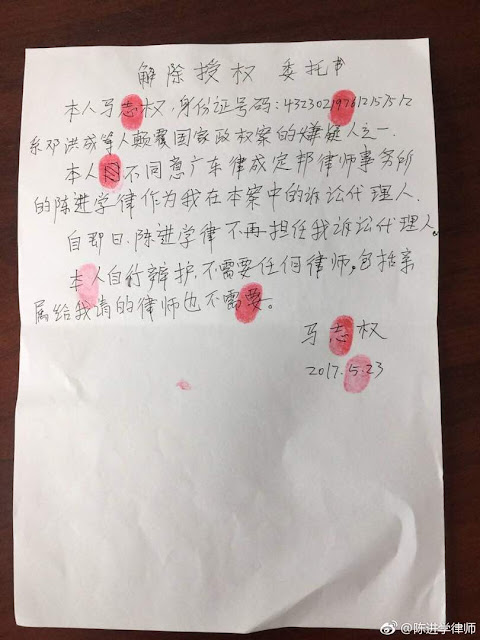 解除授权 委托书
本人马志权,身份证号码:
系邓洪成等人颠覆国家政权案的嫌疑人之一.
本人不同意广东律成定邦律师事务所
的陈进学律作为我在本案中的诉讼代理人.
自即日,陈进学律不再担任我诉讼代理人。
本人自行辩护,不需要任何律师。包括亲
属给我请的律师也不需要。
马志权
2017.5.23
@陈进学律师